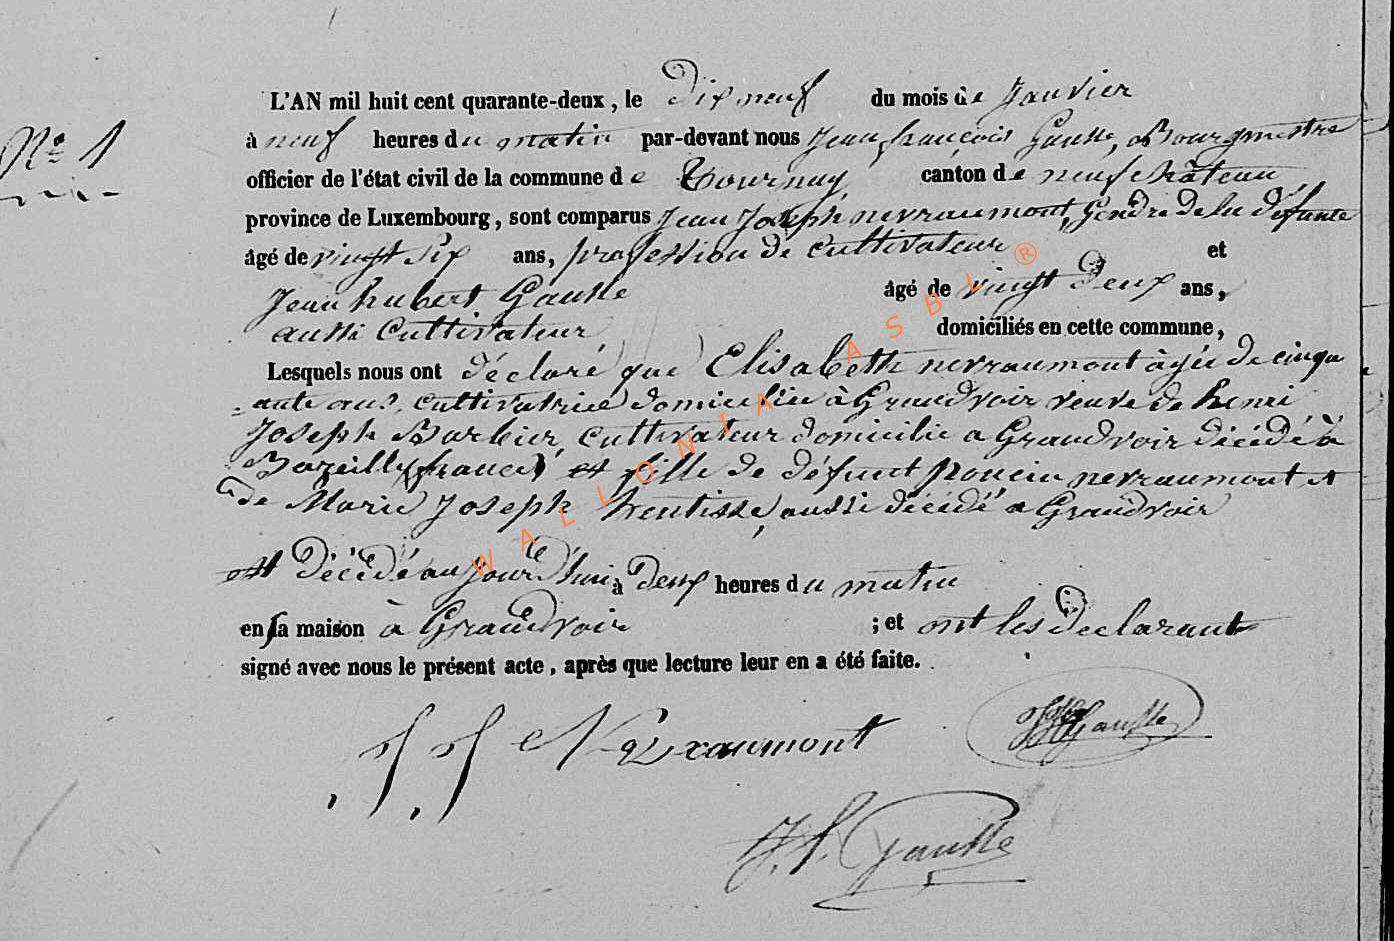 N° 1
L'AN mil huit cent quarante-deux, le Dix neuf du mois de Janvier
à neuf heures du matin par-devant nous Jean françois Gausse, Bourgmestre
officier de l'état civil de la commune de Tournay canton de neufchâteau
province de Luxembourg, sont comparus Jean Joseph nevraumont, Gendre de la défunte
âgé de vingt six ans, profession de cultivateur et
Jean hubert Gausse âgé de vingt Deux ans,
aussi Cultivateur domiciliés en cette commune,
Lesquels nous ont déclaré que Elisabeth nevraumont âgée de cinqu
=ante ans, cultivatrice domiciliée à Grandvoir veuve de henri
Joseph Barbier, cultivateur domicilié a Grandvoir décédé à
Bazeille (france) et fille de défunt Poncin nevraumont et
de Marie Joseph hentisse, aussi décédé a Grandvoir
est Décédé aujourD'hui à Deux heures du matin
en sa maison à Grandvoir ; et ont les Declarants
signé avec nous le présent acte, après que lecture leur en a été faite.
J. J. Nevraumont
Gausse
J. f. Gausse
WALLONIA ASBL ®